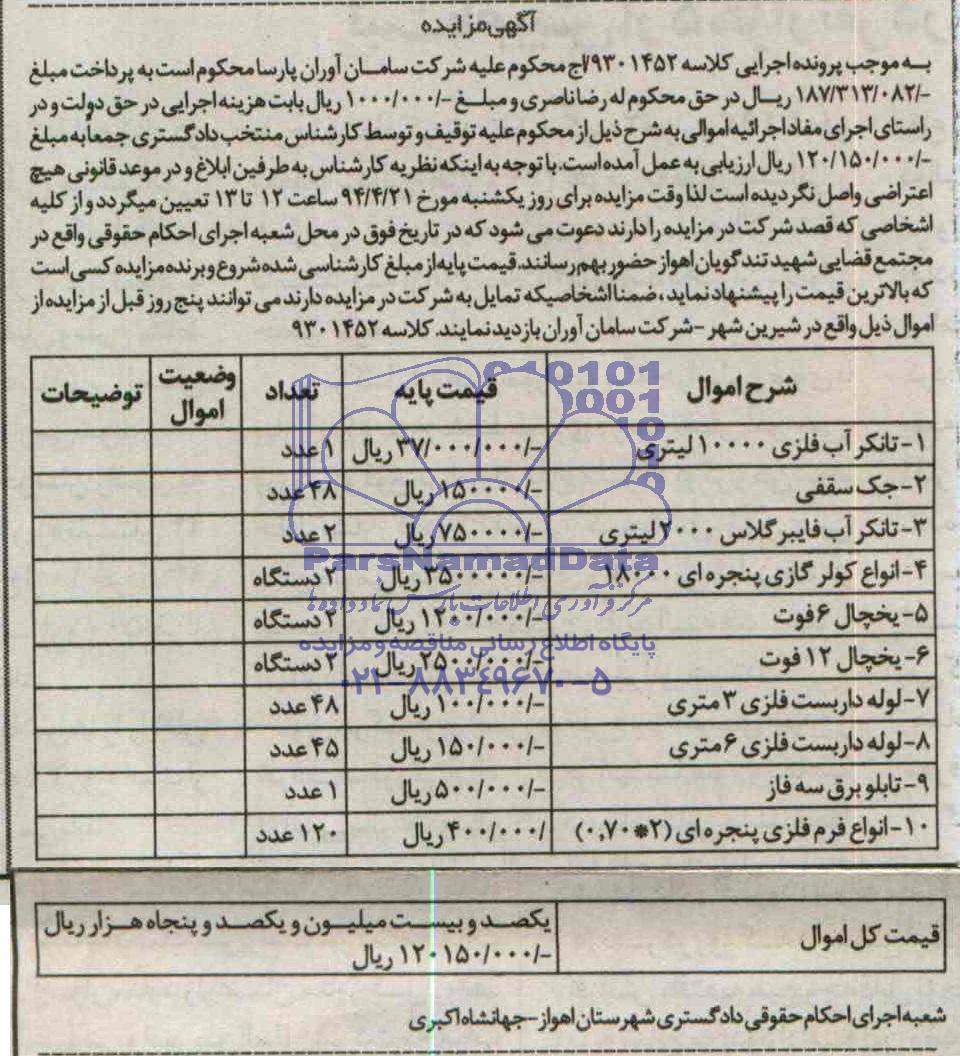 آگهی مزایده
به موجب پرونده اجرایی کلاسه ۷۹۳۰۱۴۵۲/اج محکوم علیه شرکت سامان آوران پارسا محکوم است به پرداخت مبلغ
۱۸۷/۳۱۳/۰۸۲/- ریال در حق محکوم له رضا ناصری و مبلغ ۱۰۰۰/۰۰۰/- ریال بابت هزینه اجرایی در حق دولت و در
راستای اجرای مفاد اجرائیه اموالی به شرح ذیل از محکوم علیه توقیف و توسط کارشناس منتخب دادگستری جمعاً به مبلغ
۱۲۰/۱۵۰/۰۰۰/- ریال ارزیابی به عمل آمده است. با توجه به اینکه نظریه کارشناس به طرفین ابلاغ و در موعد قانونی هیچ
اعتراضی واصل نگردیده است لذا وقت مزایده برای روز یکشنبه مورخ ۹۴/۴/۲۱ ساعت ۱۲ تا ۱۳ تعیین میگردد و از کلیه
اشخاصی که قصد شرکت در مزایده را دارند دعوت می شود که در تاریخ فوق در محل شعبه اجرای احکام حقوقی واقع در
مجتمع قضایی شهید تندگویان اهواز حضور بهم رسانند. قیمت پایه از مبلغ کارشناسی شده شروع و برنده مزایده کسی است
که بالاترین قیمت را پیشنهاد نماید، ضمنا اشخاصیکه تمایل به شرکت در مزایده دارند می توانند پنج روز قبل از مزایده از
اموال ذیل واقع در شیرین شهر - شرکت سامان آوران بازدید نمایند. کلاسه ۹۳۰۱۴۵۲
شرح اموال قیمت پایه تعداد وضعیت اموال توضیحات
۱- تانکر آب فلزی ۱۰۰۰۰ لیتری ۳۷/۰۰۰/۰۰۰/- ریال ۱ عدد
۲- جک سقفی ۱۵۰۰۰۰/- ریال ۴۸ عدد
۳- تانکر آب فایبر گلاس ۲۰۰۰ لیتری ۷۵۰۰۰۰/- ریال ۲ عدد
۴- انواع کولر گازی پنجره ای ۱۸۰۰۰ ۳۵۰۰۰۰۰/- ریال ۳ دستگاه
۵- یخچال ۶ فوت ۱۲۰۰/۰۰۰/- ریال ۲ دستگاه
۶- یخچال ۱۲ فوت ۲۵۰۰/۰۰۰/- ریال ۳ دستگاه
۷- لوله داربست فلزی ۳ متری ۱۰۰/۰۰۰/- ریال ۴۸ عدد
۸- لوله داربست فلزی ۶ متری ۱۵۰/۰۰۰/- ریال ۴۵ عدد
۹- تابلو برق سه فاز ۵۰۰/۰۰۰/- ریال ۱ عدد
۱۰- انواع فرم فلزی پنجره ای (۲*۰,۷۰) ۴۰۰/۰۰۰/ ریال ۱۲۰ عدد
قیمت کل اموال یکصد و بیست میلیون و یکصد و پنجاه هزار ریال
۱۲۰۱۵۰/۰۰۰/- ریال
شعبه اجرای احکام حقوقی دادگستری شهرستان اهواز - جهانشاه اکبری
ParsNamadData
مرکز فرآوری اطلاعات پارس نماد داده ها
پایگاه اطلاع رسانی مناقصه و مزایده
۰۲۱-۸۸۳۴۹۶۷۰-۵